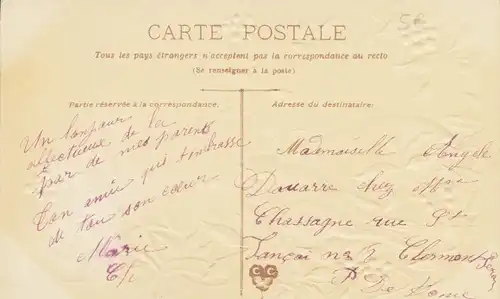 15c
CARTE POSTALE
Tous les pays étrangers n'acceptent pas la correspondance au recto
(Se renseigner à la poste)
Partie réservée à la correspondance.
Adresse du destinataire:
Un bonjour
affectueux de la
par de mes parents
Ton amie qui t'embrasse
de tou son cœur
Marie
Ch
Mademoiselle Angèle
Douarre chez Mme
Chassagne rue St
nº 2 Clermont
P De Dome